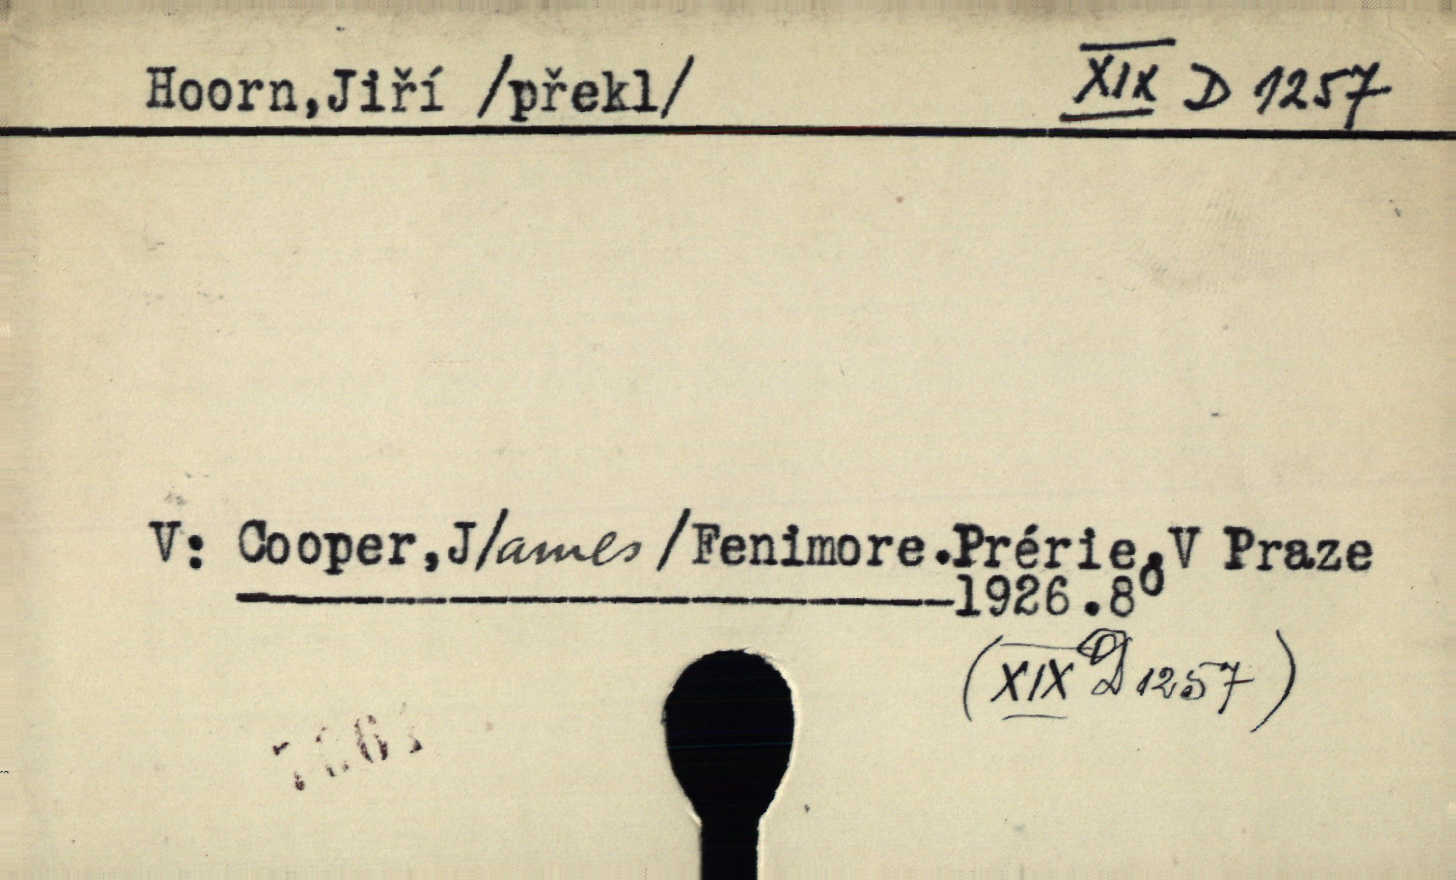 Hoorn,Jiří /překl/ XIX D 1257
V: Cooper,J/ames/Fenimore.Prérie,V Praze
1926.8⁰
(XIX D 1257)